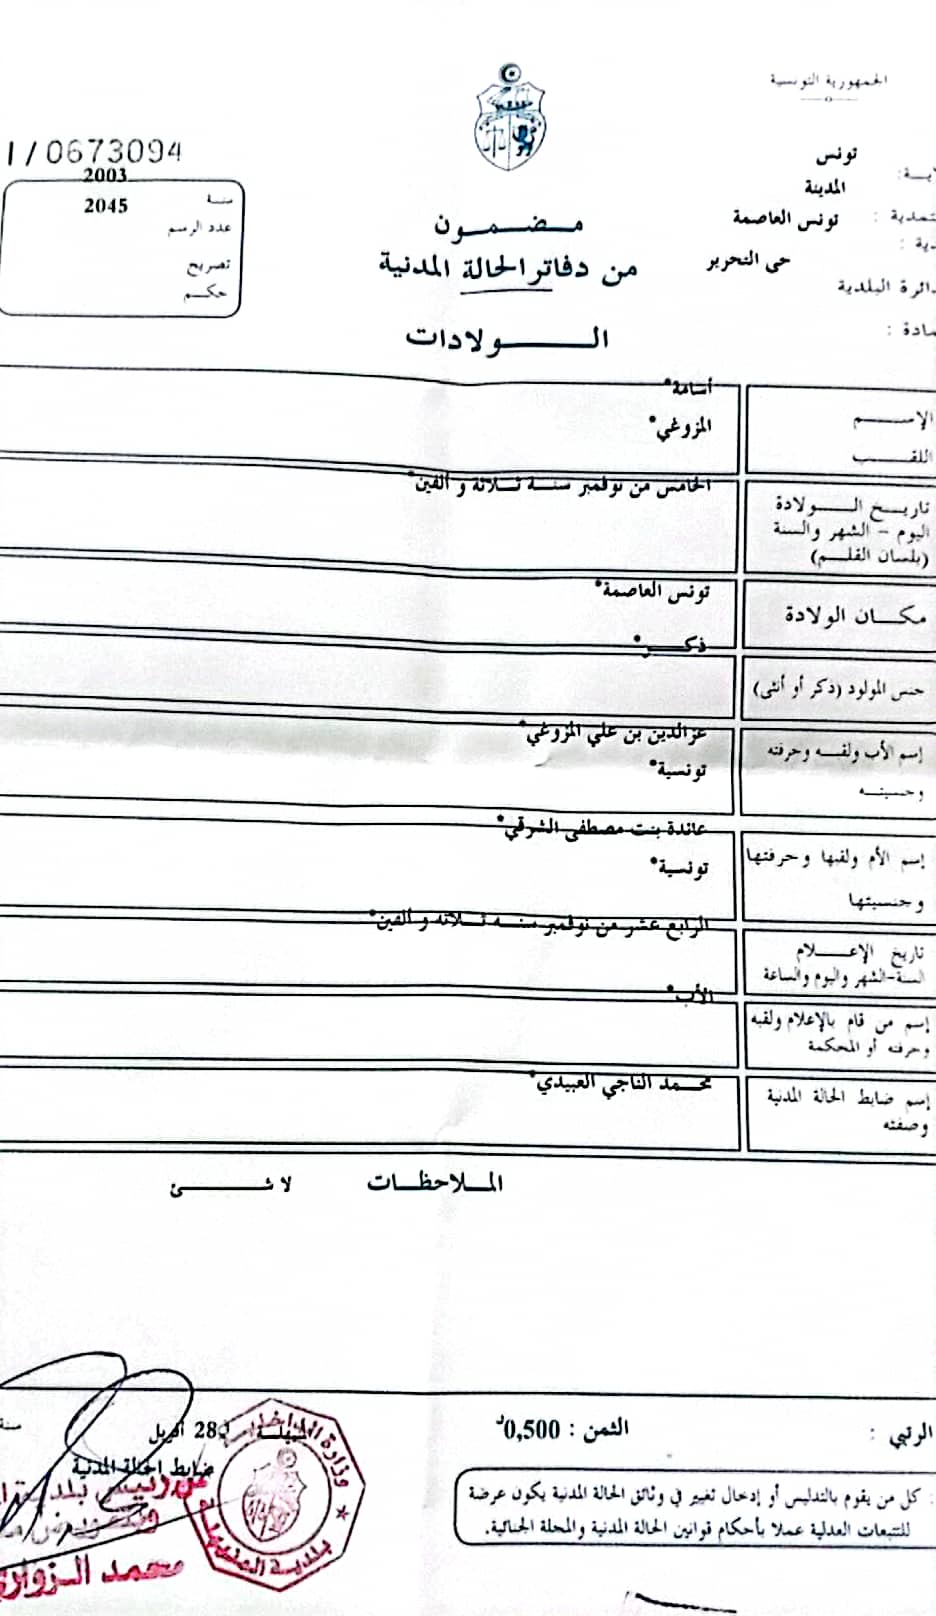 الجمهورية التونسية
تونس
المدينة
تونس العاصمة
حي التحرير
دائرة البلدية
1/0673094
2003
سنة
2045
عدد الرسم
تصريح
حكم
مضمون
من دفاتر الحالة المدنية
الولادات
الإسم
أسامة*
اللقب
المزوغي*
تاريخ الولادة
اليوم - الشهر والسنة
(بلسان القلم)
الخامس من نوفمبر سنة ثلاثة و ألفين*
مكان الولادة
تونس العاصمة*
جنس المولود (ذكر أو أنثى)
ذكر*
إسم الأب ولقبه وحرفته
وجنسيته
عزالدين بن علي المزوغي*
تونسية*
إسم الأم ولقبها وحرفتها
وجنسيتها
عائدة بنت مصطفى الشرقي*
تونسية*
تاريخ الإعلام
السنة-الشهر واليوم والساعة
الرابع عشر من نوفمبر سنة ثلاثة و ألفين*
إسم من قام بالإعلام ولقبه
وحرفته أو المحكمة
الأب*
إسم ضابط الحالة المدنية
وصفته
محمد الناجي العبيدي*
الملاحظات لا شئ
الرتبي :
الثمن : 0,500د
28 أفريل
سنة
ضابط الحالة المدنية
كل من يقوم بالتدليس أو إدخال تغيير في وثائق الحالة المدنية يكون عرضة
للتتبعات العدلية عملا بأحكام قوانين الحالة المدنية والمجلة الجنائية.
عن رئيس بلدية
محمد الزواري
وزارة الداخلية